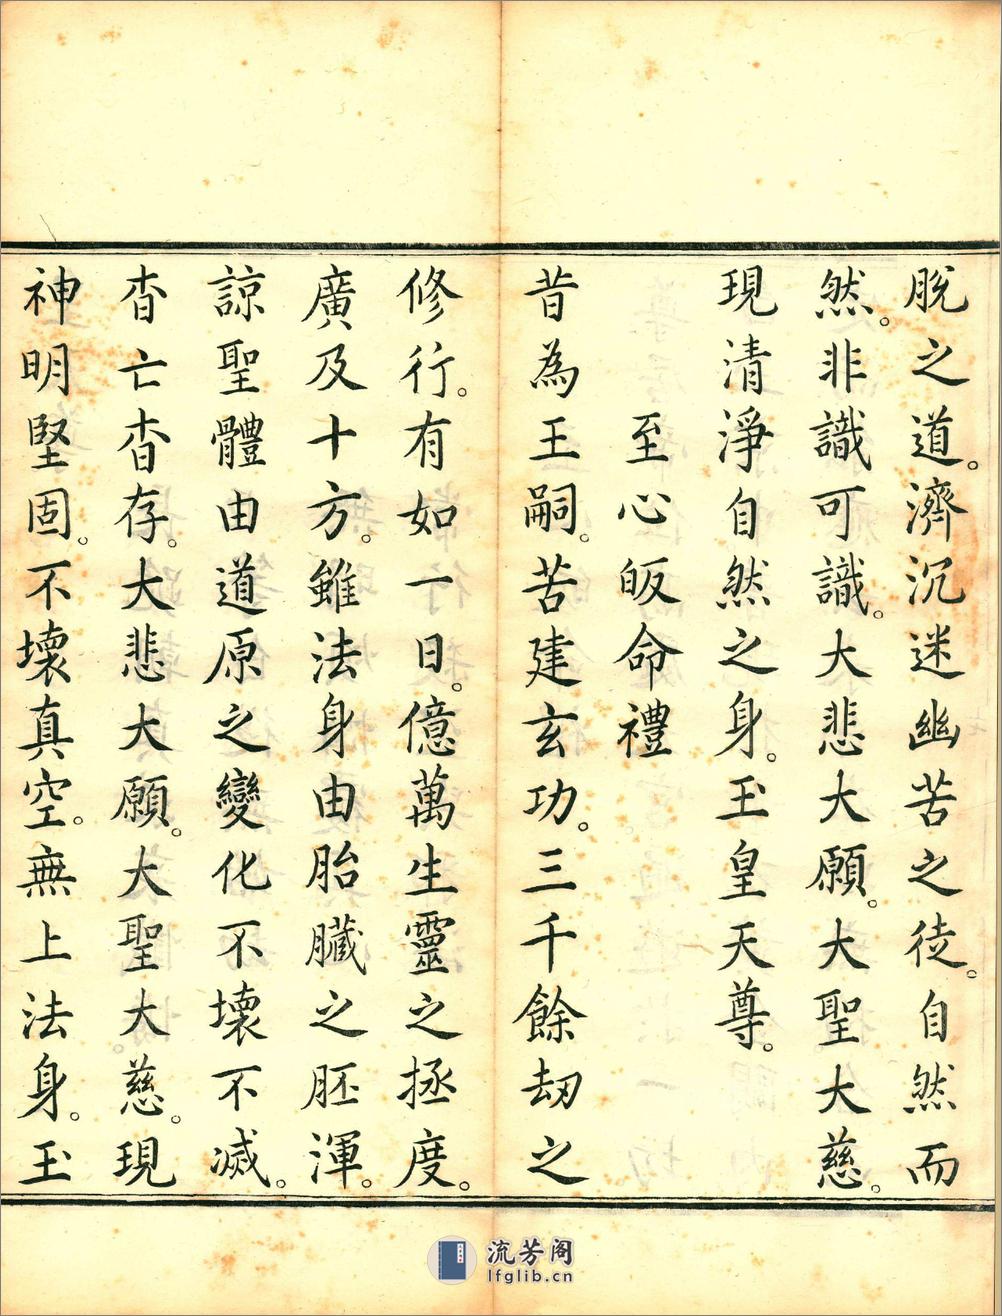 脫之道。濟沉迷幽苦之徒。自然而
然。非識可識。大悲大願。大聖大慈。
現清淨自然之身。玉皇天尊。
至心皈命禮
昔為王嗣。苦建玄功。三千餘劫之
修行。有如一日。億萬生靈之拯度。
廣及十方。雖法身由胎臟之胚渾。
諒聖體由道原之變化不壞不滅。
杳亡杳存。大悲大願。大聖大慈。現
神明堅固。不壞真空。無上法身。玉
流芳阁
lfglib.cn